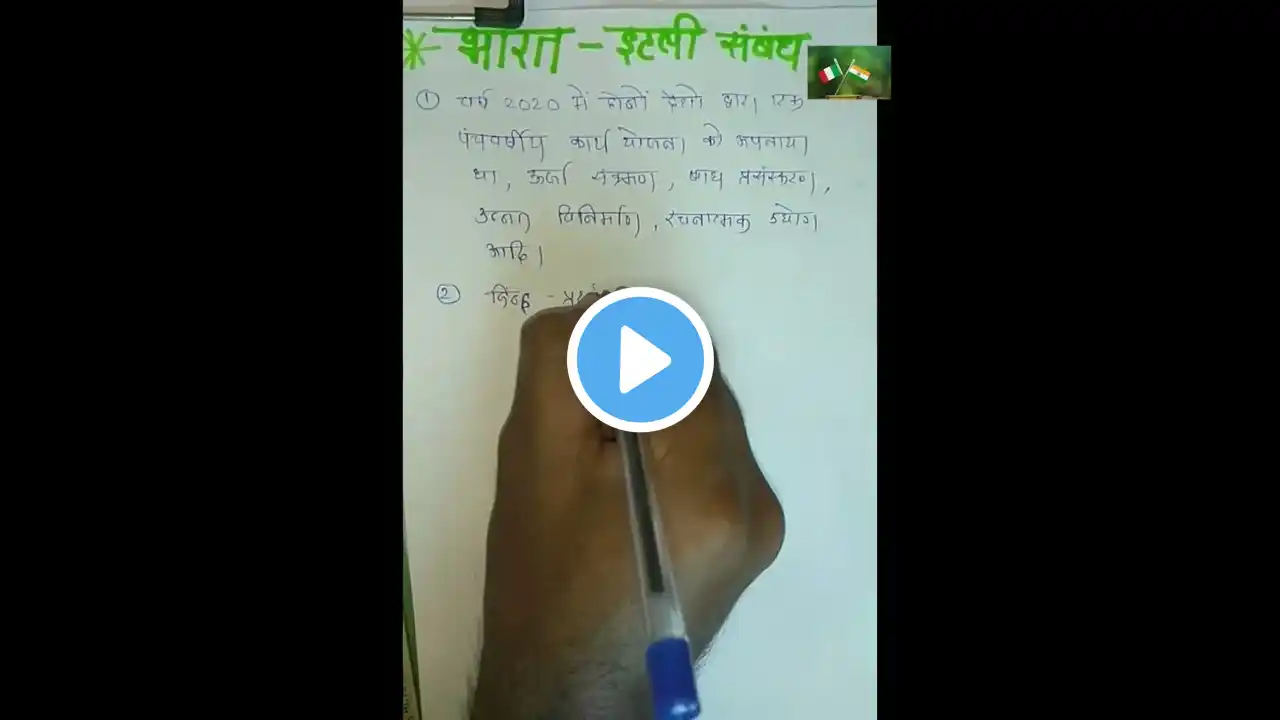 * भारत - इटली संबंध
① वर्ष 2020 में दोनों देशो द्वारा एक
पंचवर्षीय कार्य योजना को अपनाया
था, ऊर्जा संक्रमण, खाद्य प्रसंस्करण,
उन्नत विनिर्माण, रचनात्मक उद्योग
आदि।
② हिन्द -